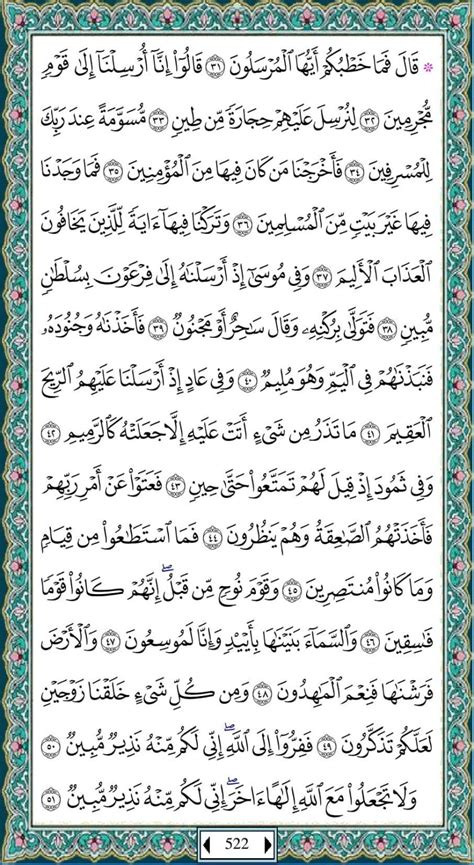 ۞ قَالَ فَمَا خَطْبُكُمْ أَيُّهَا ٱلْمُرْسَلُونَ ٣١ قَالُوٓا۟ إِنَّآ أُرْسِلْنَآ إِلَىٰ قَوْمٍ
مُّجْرِمِينَ ٣٢ لِنُرْسِلَ عَلَيْهِمْ حِجَارَةً مِّن طِينٍ ٣٣ مُّسَوَّمَةً عِندَ رَبِّكَ
لِلْمُسْرِفِينَ ٣٤ فَأَخْرَجْنَا مَن كَانَ فِيهَا مِنَ ٱلْمُؤْمِنِينَ ٣٥ فَمَا وَجَدْنَا
فِيهَا غَيْرَ بَيْتٍ مِّنَ ٱلْمُسْلِمِينَ ٣٦ وَتَرَكْنَا فِيهَآ ءَايَةً لِّلَّذِينَ يَخَافُونَ
ٱلْعَذَابَ ٱلْأَلِيمَ ٣٧ وَفِى مُوسَىٰٓ إِذْ أَرْسَلْنَٰهُ إِلَىٰ فِرْعَوْنَ بِسُلْطَٰنٍ
مُّبِينٍ ٣٨ فَتَوَلَّىٰ بِرُكْنِهِۦ وَقَالَ سَٰحِرٌ أَوْ مَجْنُونٌ ٣٩ فَأَخَذْنَٰهُ وَجُنُودَهُۥ
فَنَبَذْنَٰهُمْ فِى ٱلْيَمِّ وَهُوَ مُلِيمٌ ٤٠ وَفِى عَادٍ إِذْ أَرْسَلْنَا عَلَيْهِمُ ٱلرِّيحَ
ٱلْعَقِيمَ ٤١ مَا تَذَرُ مِن شَىْءٍ أَتَتْ عَلَيْهِ إِلَّا جَعَلَتْهُ كَٱلرَّمِيمِ ٤٢
وَفِى ثَمُودَ إِذْ قِيلَ لَهُمْ تَمَتَّعُوا۟ حَتَّىٰ حِينٍ ٤٣ فَعَتَوْا۟ عَنْ أَمْرِ رَبِّهِمْ
فَأَخَذَتْهُمُ ٱلصَّٰعِقَةُ وَهُمْ يَنظُرُونَ ٤٤ فَمَا ٱسْتَطَٰعُوا۟ مِن قِيَامٍ
وَمَا كَانُوا۟ مُنتَصِرِينَ ٤٥ وَقَوْمَ نُوحٍ مِّن قَبْلُ ۖ إِنَّهُمْ كَانُوا۟ قَوْمًا
فَٰسِقِينَ ٤٦ وَٱلسَّمَآءَ بَنَيْنَٰهَا بِأَيْي۟دٍ وَإِنَّا لَمُوسِعُونَ ٤٧ وَٱلْأَرْضَ
فَرَشْنَٰهَا فَنِعْمَ ٱلْمَٰهِدُونَ ٤٨ وَمِن كُلِّ شَىْءٍ خَلَقْنَا زَوْجَيْنِ
لَعَلَّكُمْ تَذَكَّرُونَ ٤٩ فَفِرُّوٓا۟ إِلَى ٱللَّهِ ۖ إِنِّى لَكُم مِّنْهُ نَذِيرٌ مُّبِينٌ ٥٠
وَلَا تَجْعَلُوا۟ مَعَ ٱللَّهِ إِلَٰهًا ءَاخَرَ ۖ إِنِّى لَكُم مِّنْهُ نَذِيرٌ مُّبِينٌ ٥١
522